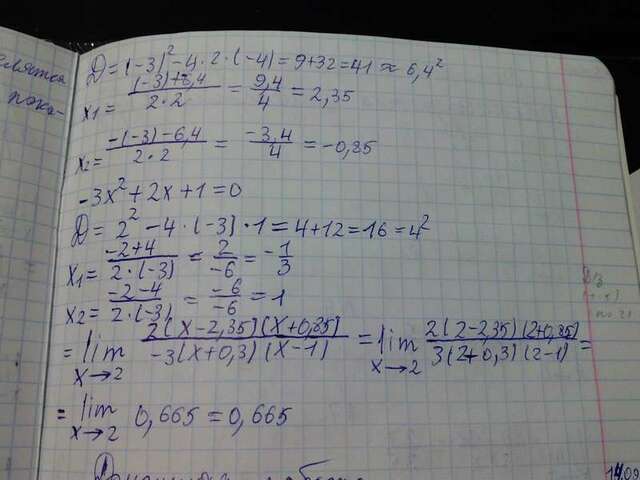 D = (-3)² - 4 · 2 · (-4) = 9 + 32 = 41 ≈ 6,4²
x₁ = (-3)+6,4 / 2·2 = 9,4 / 4 = 2,35
x₂ = -(-3)-6,4 / 2·2 = -3,4 / 4 = -0,85
-3x² + 2x + 1 = 0
D = 2² - 4 · (-3) · 1 = 4 + 12 = 16 = 4²
x₁ = -2+4 / 2·(-3) = 2 / -6 = -1/3
x₂ = -2-4 / 2·(-3) = -6 / -6 = 1
= lim x→2 2(x-2,35)(x+0,85) / -3(x+0,3)(x-1) = lim x→2 2(2-2,35)(2+0,85) / 3(2+0,3)(2-1) =
= lim x→2 0,665 = 0,665